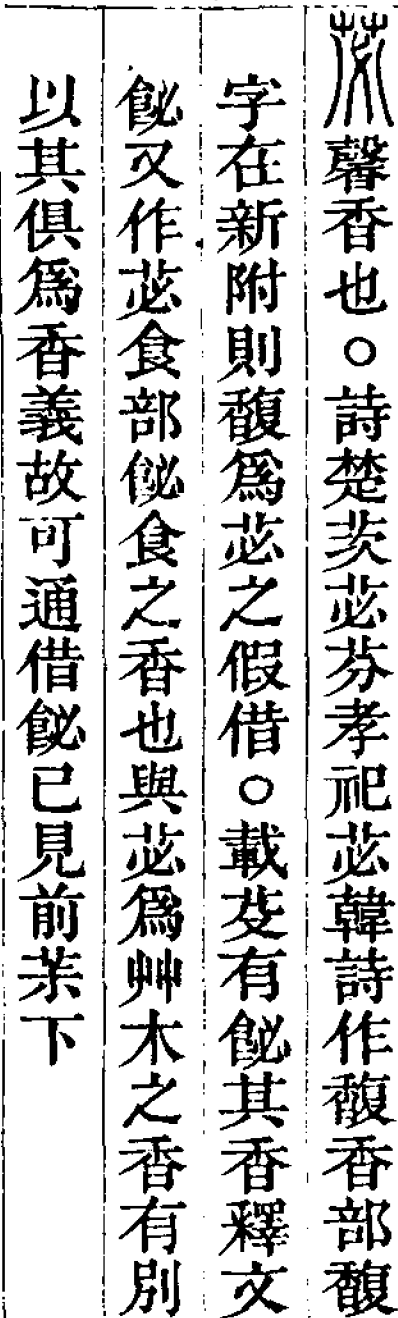 苾馨香也○詩楚茨苾芬孝祀苾韓詩作馥香部馥
字在新附則馥爲苾之假借○載芟有飶其香釋文
飶又作苾食部飶食之香也與苾爲艸木之香有別
以其俱爲香義故可通借飶已見前茮下